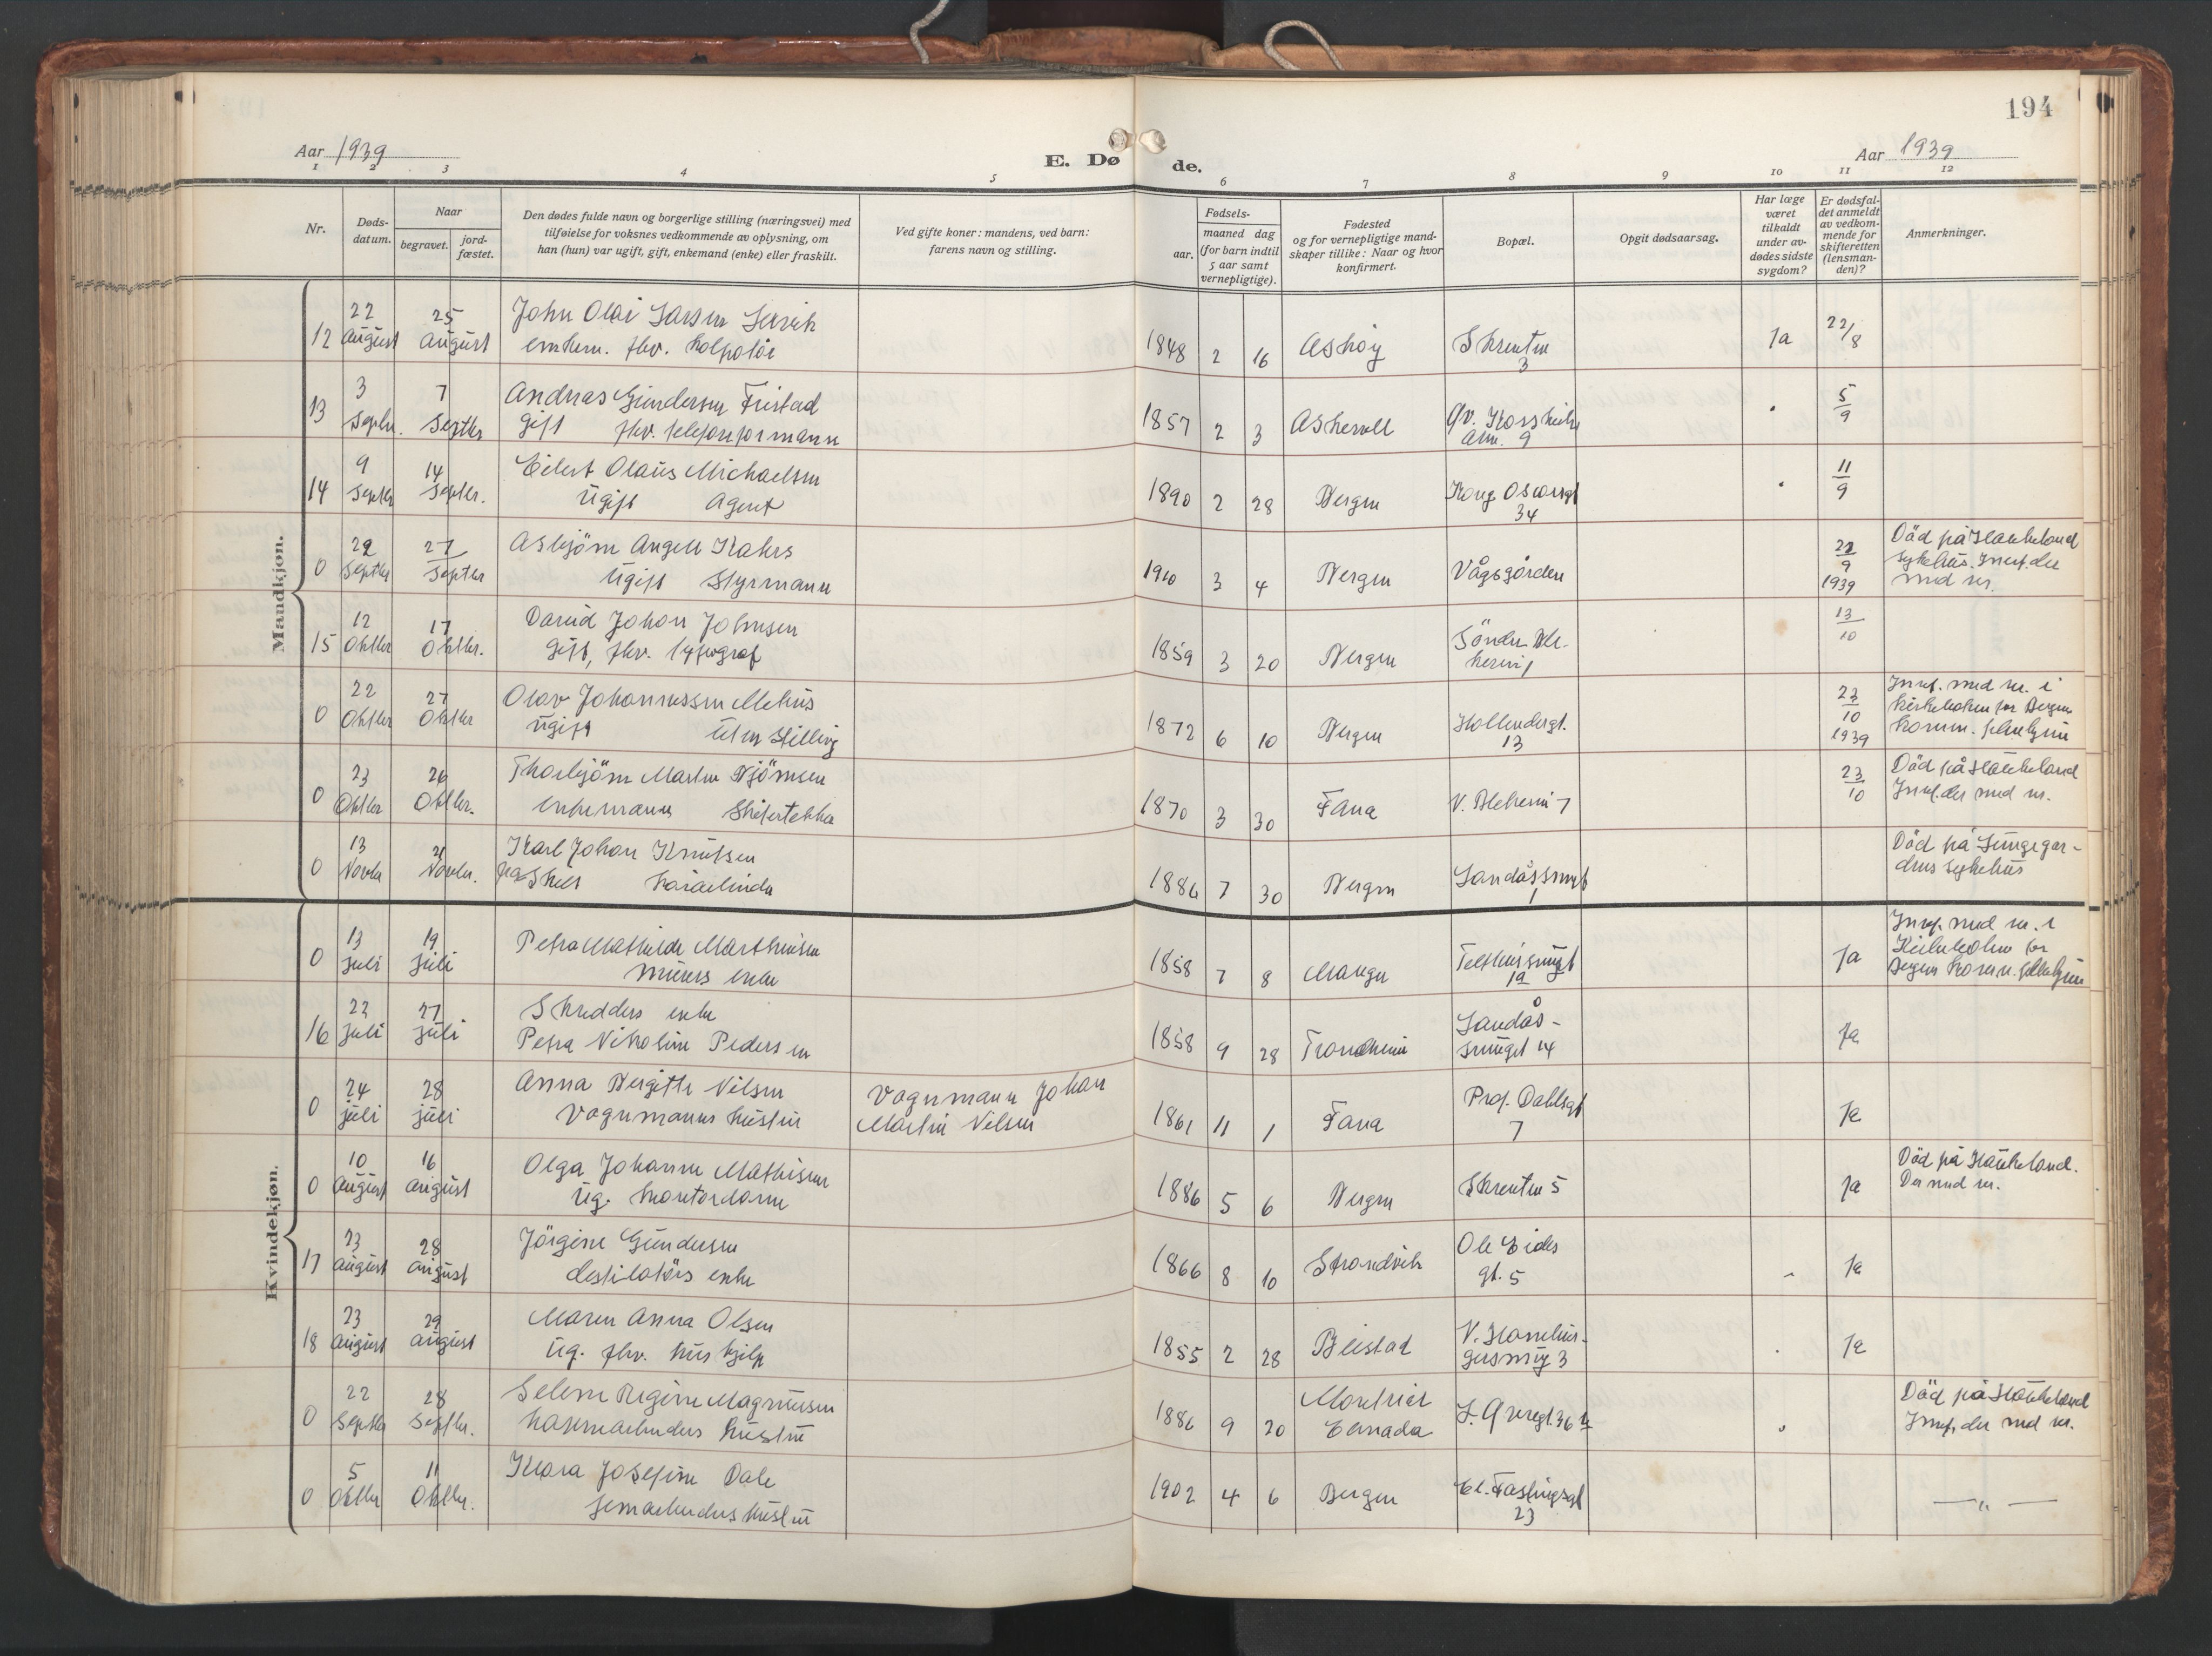 194
Aar 1939
E. Dø de.
Aar 1939
1 2 3 4 5 6 7 8 9 10 11 12
Nr.
Døds-
datum.
Naar
begravet.
jord-
fæstet.
Den dødes fulde navn og borgerlige stilling (næringsvei) med
tilføielse for voksnes vedkommende av oplysning, om
han (hun) var ugift, gift, enkemand (enke) eller fraskilt.
Ved gifte koner: mandens, ved barn:
farens navn og stilling.
aar.
Fødsels-
maaned dag
(for barn indtil
5 aar samt
vernepligtige).
Fødested
og for vernepligtige mand-
skaper tillike: Naar og hvor
konfirmert.
Bopæl.
Opgit dødsaarsag.
Har læge
været
tilkaldt
under av-
dødes sidste
sygdom?
Er dødsfal-
det anmeldt
av vedkom-
mende for
skifteretten
(lensman-
den)?
Anmerkninger.
Mandkjøn.
12 22 august 25 august
John Olai Larsen
enkem. fhv.
1848 2 16 Askøy Skrenten 3 Ja 22/8
13 3 Septbr. 7 Septbr
Andreas Gundersen Fristad
gift fhv. telefonformann
1857 2 3 Askevoll 9 5/9
14 9 Septbr 14 Septbr.
Eilert Olaus Michaelsen
Ugift Agent
1890 2 28 Bergen Kong Oscarsgt 34 11/9
0 22 Septbr 27 Septbr
Asbjörn Angell Kahrs
Ugift Styrmann
1910 3 4 Bergen Vågsgården 22/9 1939
Död på Haukeland
sykehus. Innf. der
med nr.
15 12 Oktbr 17 Oktbr.
David Johan Johnsen
Gift, fhv. typograf
1859 3 20 Bergen 13/10
0 22 Oktbr 27 Oktbr
Olav Johannessen Mehus
Ugift uten stilling
1872 6 10 Bergen Hollendergt. 13 23/10 1939
Innf. med nr. i
kirkeboken for Bergens
komm. pleiehjem
0 23 Oktbr 26 Oktbr.
Thorbjörn Martin Björnsen
enkemann Skifertekker
1870 3 30 Fana V. Blekevei 7 23/10
Död på Haukeland
Innf. der med nr.
0 13 Novbr 21 Novbr.
Karl Johan Knutsen
fraskilt havnearbeider
1886 7 30 Bergen Landåssmuget 1
Död på Lungegår-
dens sykehus
Kvindekjøn.
0 13 juli 19 juli
Petra Mathilde Marthinsen
murers enke
1858 7 8 Manger 1a Ja
Innf. med nr. i
Kirkeboken for
Bergens komm. pleiehjem
16 22 juli 27 juli
Skredders enke
Petra Nikoline Pedersen
1858 9 28 Trondheim Landås-
smuget 14 Ja
0 24 juli 28 juli
Anna Bergitte Nilsen
Vognmanns hustru
Vognmann Johan
Martin Nilsen
1861 11 1 Fana Prof. Dahlsgt 7 Ja
0 10 august 16 august
Olga Johanne Mathisen
Ug. kontordame
1886 5 6 Bergen Skrenten 5 Ja
Död på Haukeland.
Der med nr.
17 23 august 28 august
Jörgine Gundersen
destilatörs enke
1866 8 10 Strandvik Ole Eides
gt. 5 Ja
18 23 august 29 august
Maren Anna Olsen
Ug. fhv. hushjelp
1855 2 28 Beistad 3 Ja
0 22 Septbr 28 Septbr.
Selene Regine Magnussen
havnearbeiders hustru
1886 9 20 Montreal
Canada
Död på Haukeland
Innf. der med nr.
0 5 Oktbr 11 Oktbr.
Klara Josefine Dale
jernarbeiders hustru
1902 4 6 Bergen Cl. Fastingsgt 23
— „ —